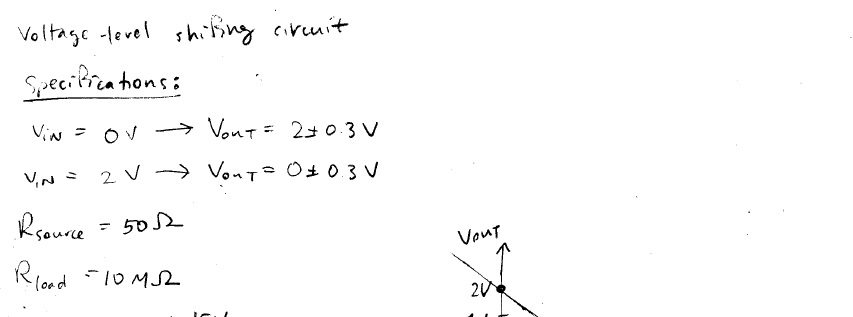 Voltage-level shifting circuit
Specifications:
VIN = 0V → VOUT = 2±0.3V
VIN = 2V → VOUT = 0±0.3V
Rsource = 50Ω
Rload = 10MΩ
VOUT
2V